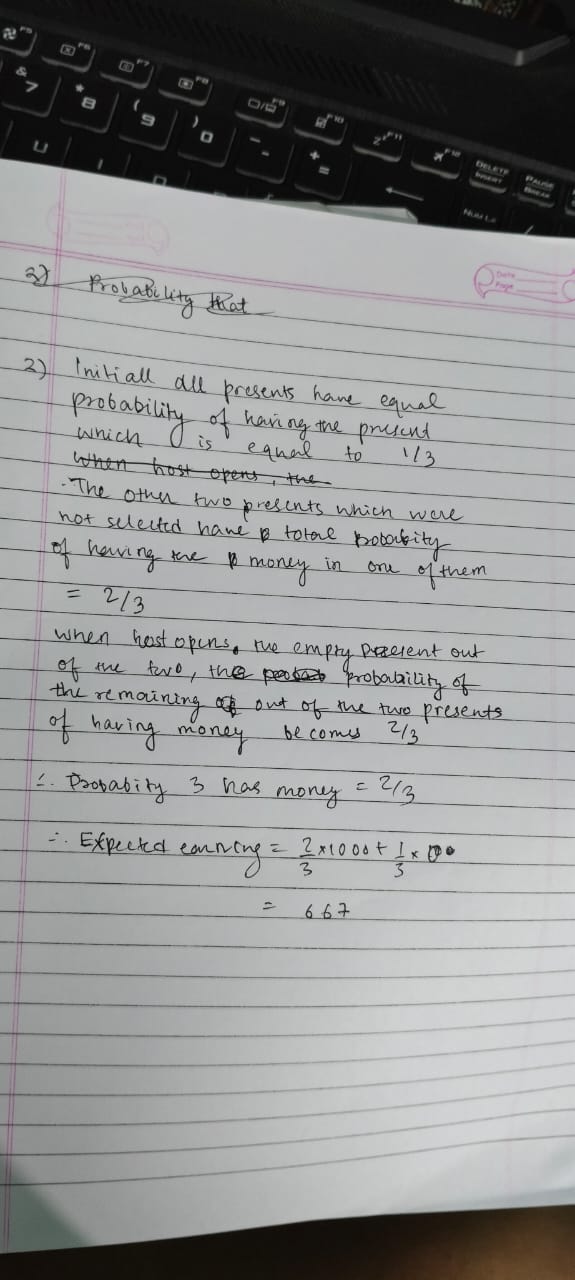 F5
F6
F7
F8
F9
F10
F11
F12
DELETE
INSERT
PAUSE
BREAK
&
7
*
8
(
9
)
0
-
+
=
U
I
Date
Page
2) Probability that
2) Initiall all presents have equal
probability of having the present
which is equal to 1/3
When host opens, the
The other two presents which were
not selected have p total probabity
of having the p money in one of them
= 2/3
when host opens, the empty present out
of the two, the probability of
the remaining of out of the two presents
of having money becomes 2/3
∴ Probabity 3 has money = 2/3
∴ Expected earning = 2/3 x 1000 + 1/3 x 0
= 667